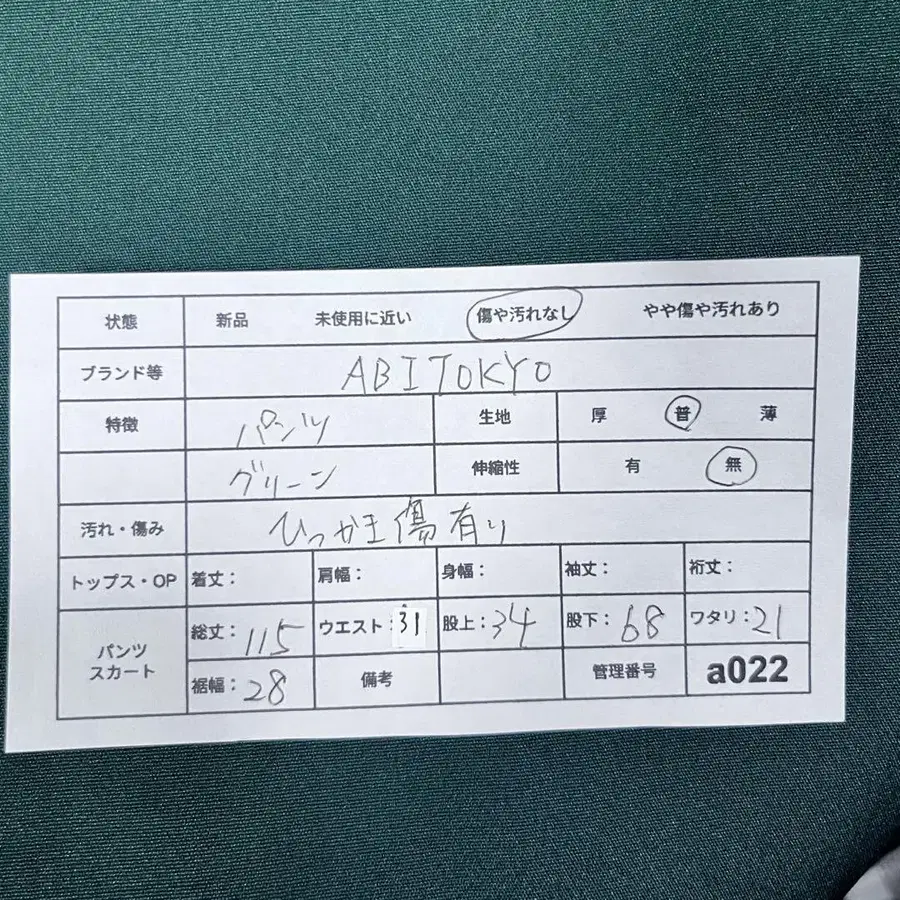 状態 新品 未使用に近い 傷や汚れなし やや傷や汚れあり
ブランド等 ABITOKYO
特徴 パンツ 生地 厚 普 薄
グリーン 伸縮性 有 無
汚れ・傷み ひっかき傷有り
トップス・OP 着丈: 肩幅: 身幅: 袖丈: 裄丈:
パンツ スカート 総丈:115 ウエスト:31 股上:34 股下:68 ワタリ:21
裾幅:28 備考 管理番号 a022